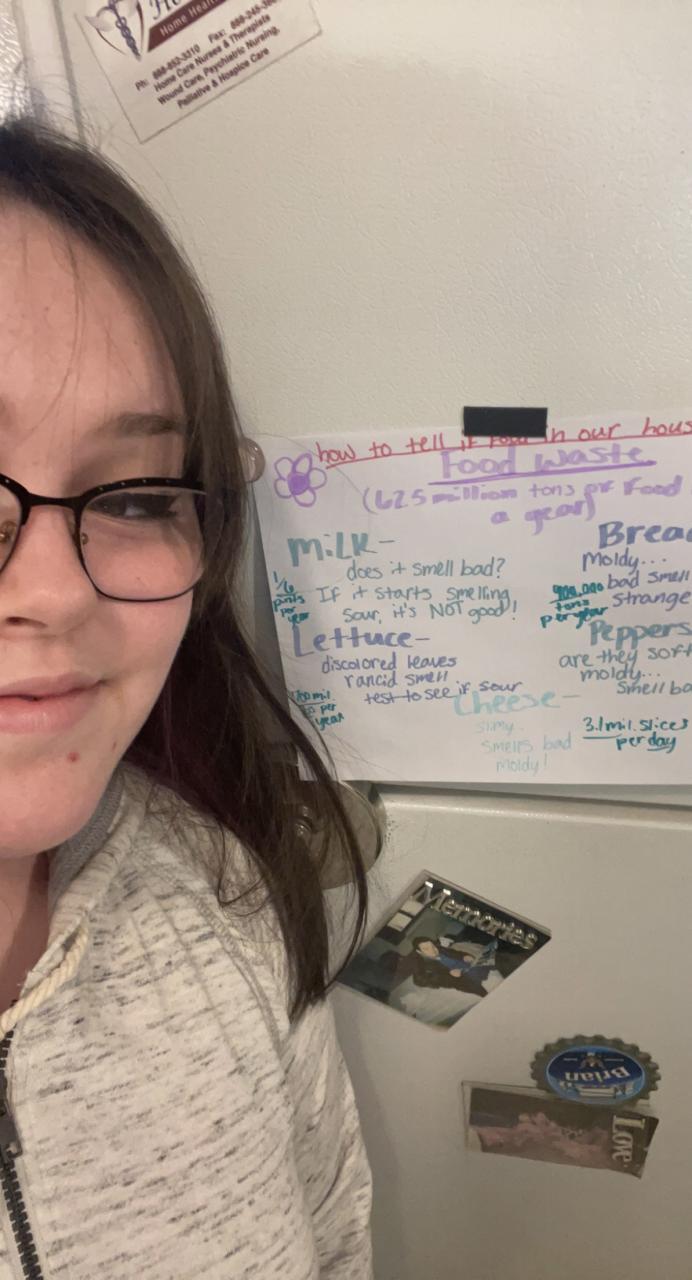 Home Heal
Ph: 888-852-3310 Fax: 888-245-
Home Care Nurses & Therapists
Wound Care, Psychiatric Nursing,
Palliative & Hospice Care
how to tell if food in our hous
Food waste
(62.5 million tons of food
a year)
Milk-
does it smell bad?
If it starts smelling
sour, it's NOT good!
1/6
pints
per
year
Lettuce-
discolored leaves
rancid smell
test to see if sour
mil.
per
year
Cheese-
slimy..
smells bad
moldy!
Bread
Moldy...
bad smell
strange
900,000
tons
per year
Peppers
are they soft
moldy...
smell ba
3.1 mil. slices
per day
Memories
Brian
Love